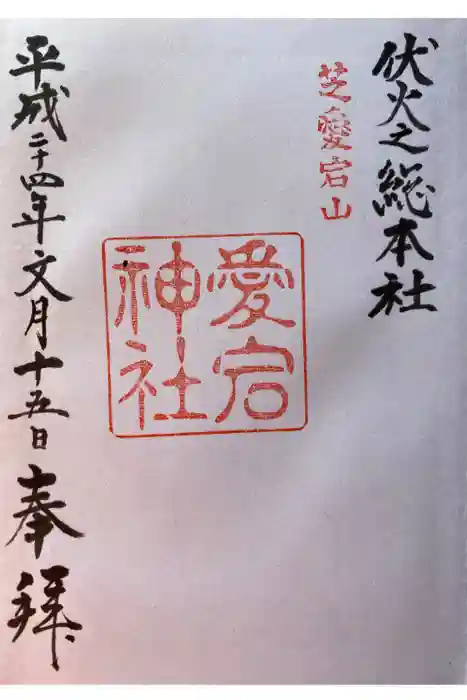 伏火之總本社
芝愛宕山
愛宕
神社
平成二十四年文月十五日奉拜